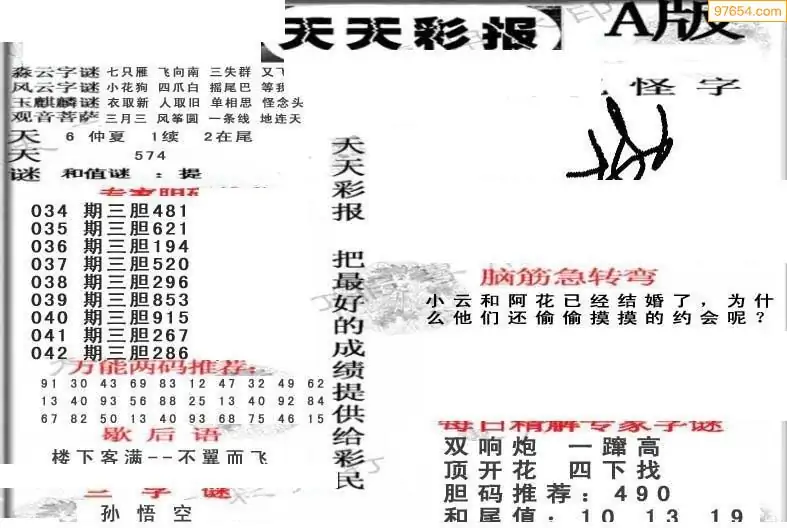 天天彩报
A版
97654.com
淼云字谜 七只雁 飞向南 三失群 又飞
风云字谜 小花狗 四爪白 摇尾巴 等我
玉麒麟谜 衣取新 人取旧 单相思 怪念头
观音菩萨 三月三 风筝圆 一条线 地连天
天 6 仲夏 1续 2在尾
天 574
谜 和值谜 : 提
怪字
034 期三胆481
035 期三胆621
036 期三胆194
037 期三胆520
038 期三胆296
039 期三胆853
040 期三胆915
041 期三胆267
042 期三胆286
万能两码推荐:
91 30 43 69 83 12 47 32 49 62
13 40 93 56 88 25 13 40 92 84
67 82 50 13 40 93 68 75 46 15
歇后语
楼下客满--不翼而飞
三字谜
孙悟空
天天彩报 把最好的成绩提供给彩民
脑筋急转弯
小云和阿花已经结婚了,为什
么他们还偷偷摸摸的约会呢?
每日精解专家字谜
双响炮 一蹿高
顶开花 四下找
胆码推荐:490
和尾值:10 13 19